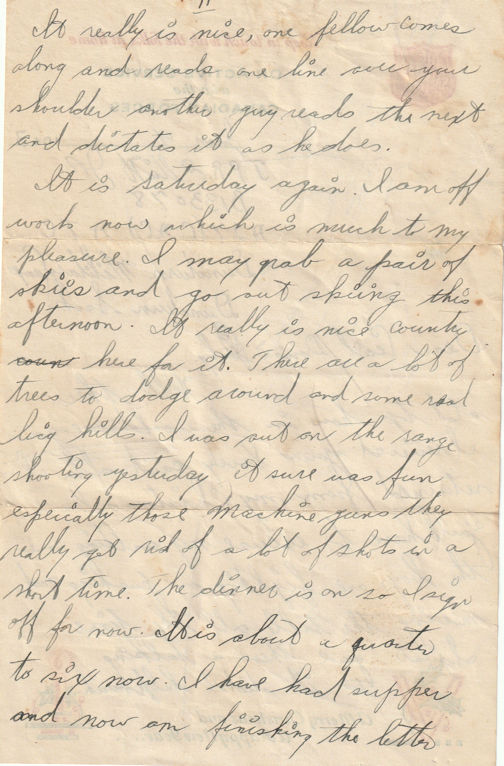 11
It really is nice, one fellow comes
along and reads one line over your
shoulder another guy reads the next
and dictates it as he does.
It is Saturday again. I am off
work now which is much to my
pleasure. I may grab a pair of
skiis and go out skiing this
afternoon. It really is nice county
count here for it. There are a lot of
trees to dodge around and some real
big hills. I was out on the range
shooting yesterday it sure was fun
especially those machine guns they
really get rid of a lot of shots in a
short time. The dinner is on so I sign
off for now. It is about a quarter
to six now. I have had supper
and now am finishing the letter